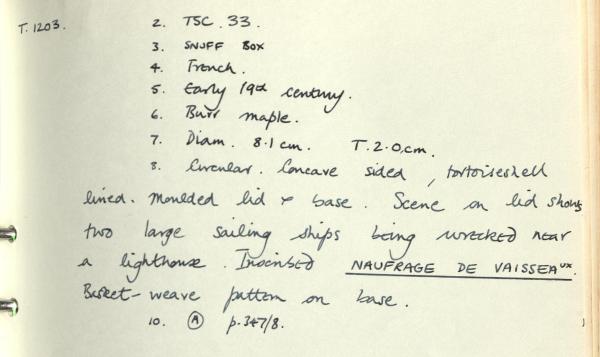 T.1203. 2. TSC. 33.
3. SNUFF BOX
4. French.
5. Early 19th century.
6. Burr maple.
7. Diam. 8.1 cm. T. 2.0, cm.
8. Circular. Concave sided, tortoiseshell
lined. Moulded lid & base. Scene on lid shows
two large sailing ships being wrecked near
a lighthouse. Inscribed NAUFRAGE DE VAISSEAUX.
Basket-weave pattern on base.
10. A p.347/8.